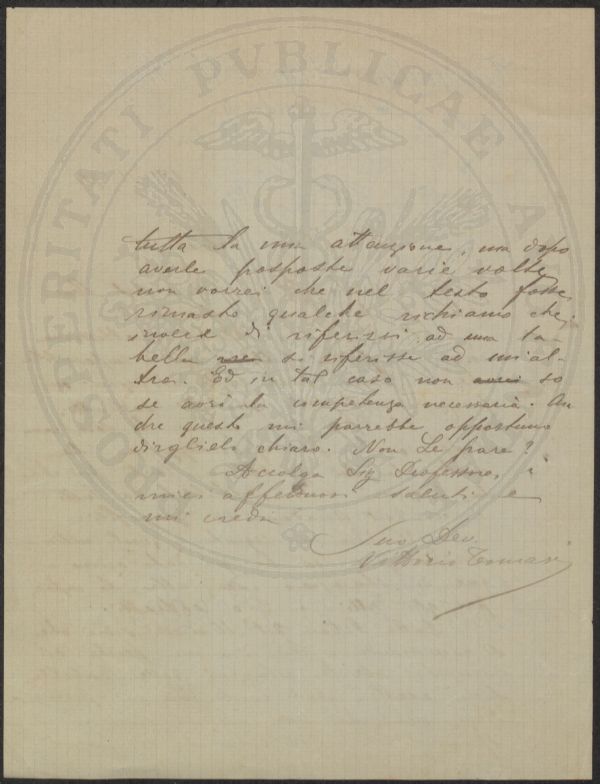 PROSPERITATI PVBLICAE A
tutta la mia attenzione, ma dopo
averle posposte varie volte
non vorrei che nel testo fosse
rimasto qualche richiamo che,
invece di riferirsi ad una ta-
bella si riferisse ad un'al-
tra. Ed in tal caso non so
se avrà la competenza necessaria. An
che questo mi parrebbe opportuno
dirglielo chiaro. Non Le pare?
Accolga Sig Professore, i
miei affettuosi saluti e
mi creda
Suo Dev.
Vittorio